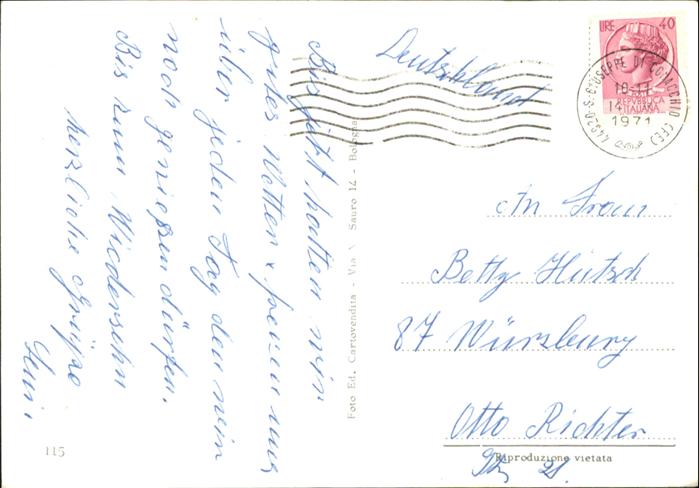 Bis jetzt hatten wir
gutes Wetter & freuen uns
über jeden Tag den wir
noch genießen dürfen.
Bis zum Wiedersehn
herzliche Grüße
115
Foto Ed. Cartovendita - Via Sauro 14 - Bologna
Deutschland
LIRE 40
REPVBBLICA
ITALIANA
44020 S. GIUSEPPE DI COMACCHIO (FE)
10-17
14
1971
An Frau
Betty Hütsch
87 Würzburg
Otto Richter
Str. 21
Riproduzione vietata